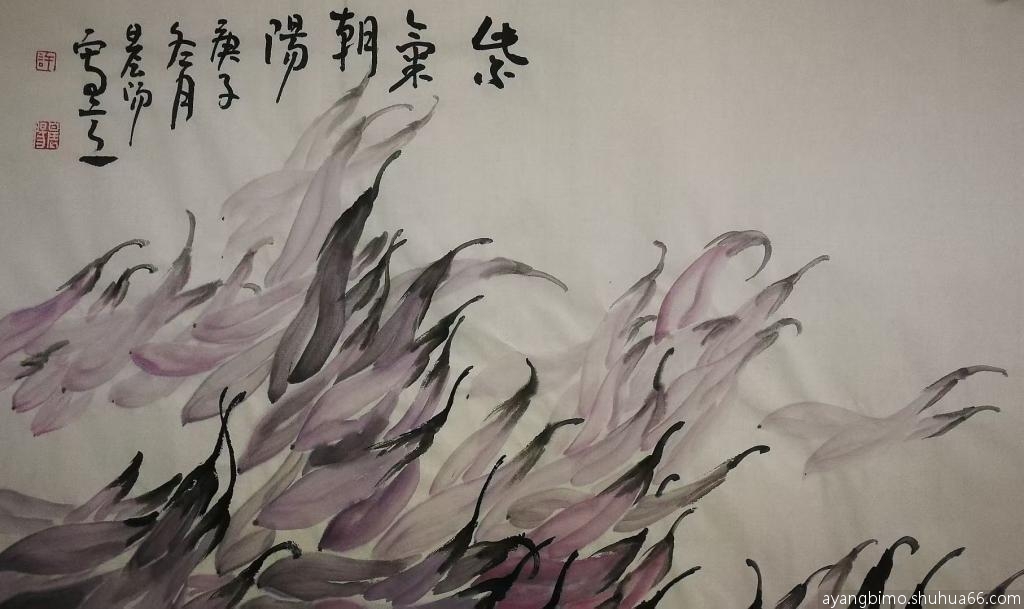 紫氣朝陽
庚子
冬月
晨陽
許
ayangbimo.shuhua66.com